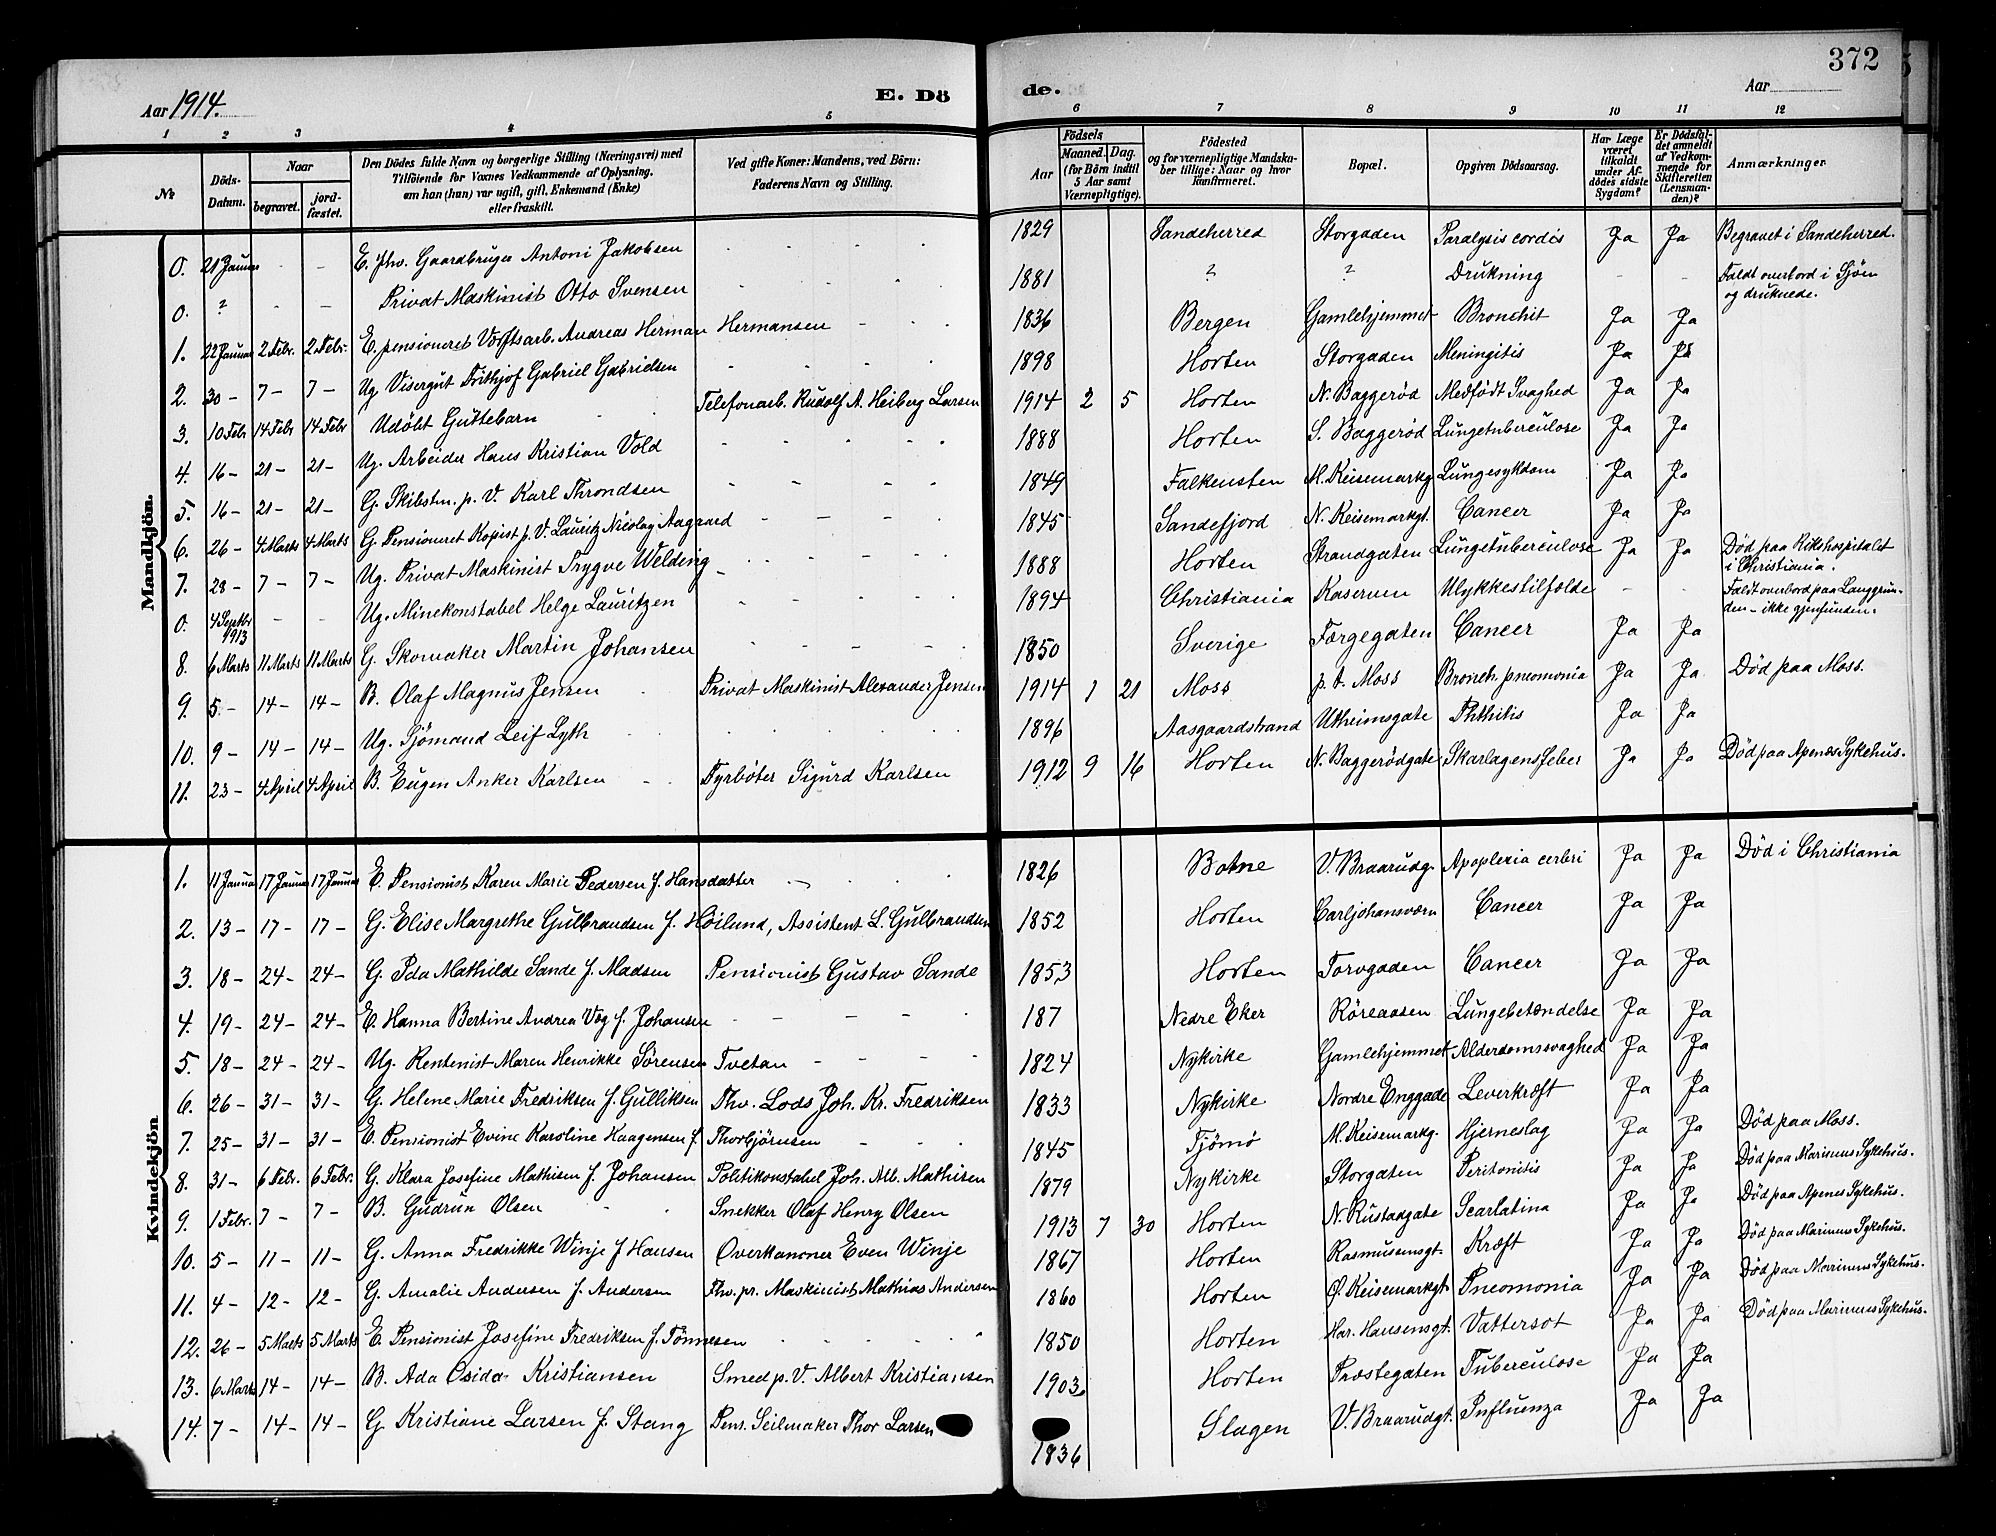 372
Aar 1914.
E. Dö
de.
Aar
1 2 3 4 5
6 7 8 9 10 11 12
№
Döds-Datum.
Naar
begravet.
jord-fæstet.
Den Dödes fulde Navn og borgerlige Stilling (Næringsvei) med Tilföiende for Voxnes Vedkommende af Oplysning, om han (hun) var ugift, gift, Enkemand (Enke) eller fraskilt.
Ved gifte Koner: Mandens, ved Börn: Faderens Navn og Stilling.
Födsels
Aar
Maaned. Dag.
(for Börn indtil 5 Aar samt Værnepligtige).
Födested og for værnepligtige Mandskaber tillige: Naar og hvor konfirmeret.
Bopæl.
Opgiven Dödsaarsag.
Har Læge været tilkaldt under Afdödes sidste Sygdom?
Er Dödsfaldet anmeldt af Vedkommende for Skifteretten (Lensmanden)?
Anmærkninger
Mandkjön.
0. 21 Januar - - E. fhv. Gaardbruger Antoni Jakobsen - - - 1829 Sandeherred Storgaden Paralysis cordis Ja Ja Begravet i Sandeherred.
0. ? - - Privat Maskinist Otto Svensen - - - 1881 ? ? Drukning - - Faldt overbord i Sjøen og druknede.
1. 22 Januar 2 Febr. 2 Febr. E. pensioneret Værftsarb. Andreas Herman Hermansen - - - 1836 Bergen Gamlehjemmet Bronchit Ja Ja
2. 30 - 7 - 7 - Ug Visergut Frithjof Gabriel Gabrielsen - - - 1898 Horten Storgaden Meningitis Ja Ja
3. 10 Febr 14 Febr 14 Febr Udöbt Guttebarn - - Telefonarb. Rudolf A. Heiberg Larsen 1914 2 5 Horten N. Baggerød Medfødt Svaghed Ja Ja
4. 16 - 21 - 21 - Ug. Arbeider Hans Kristian Vold - - - 1888 Horten S. Baggerød Lungetuberculose Ja Ja
5. 16 - 21 - 21 - G. Skibstm. p. V. Karl Throndsen - - - 1849 Falkensten M. Keisemarkg Lungesykdom Ja Ja
6. 26 - 4 Marts 4 Marts G. Pensioneret Kopist p. V. Lauritz Nicolay Aagaard - - - 1845 Sandefjord N. Keisemarkgt. Cancer Ja Ja
7. 28 - 7 - 7 - Ug. Privat Maskinist Trygve Welding - - - 1888 Horten Strandgaten Lungetuberculose Ja Ja Død paa Rikshospitalet i Christiania.
0. 4 Septbr 1913 - - Ug. Minekonstabel Helge Lauritzen - - - 1894 Christiania Kasernen Ulykkestilfælde - - Faldt overbord paa Langgrunden - ikke gjenfunden.
8. 6 Marts 11 Marts 11 Marts G. Skomaker Martin Johansen - - - 1850 Sverige Færgegaten Cancer Ja Ja
9. 5 - 14 - 14 - B. Olaf Magnus Jensen - Privat Maskinist Alexander Jensen 1914 1 21 Moss p. t. Moss Bronch. pneomonia Ja Ja Død paa Moss.
10. 9 - 14 - 14 - Ug. Sjømand Leif Lyth - - - 1896 Aasgaardstrand Utheimsgate Phthitis Ja Ja
11. 23 - 4 April 4 April B. Eugen Anker Karlsen - - Fyrbøter Sigurd Karlsen 1912 9 16 Horten N. Baggerødgate Skarlagensfeber Ja Ja Død paa Apenes Sykehus.
Kvindekjön
1. 11 Januar 17 Januar 17 Januar E. Pensionist Karen Marie Pedersen f. Hansdatter - - - 1826 Botne V. Braarudg. Apoplexia cerbri Ja Ja Død i Christiania
2. 13 - 17 - 17 - G. Elise Margrethe Gulbrandsen f. Höilund, Assistent L. Gulbrandsen 1852 Horten Carljohansværn Cancer Ja Ja
3. 18 - 24 - 24 - G. Ida Mathilde Sande f. Madsen Pensionist Gustav Sande 1853 Horten Torvgaden Cancer Ja Ja
4. 19 - 24 - 24 - E. Hanna Bertine Andrea Vog f. Johansen - - - 187 Nedre Eker Røreaasen Lungebetændelse Ja Ja
5. 18 - 24 - 24 - Ug. Rentenist Maren Henrikke Sørensen Tvetan - - - 1824 Nykirke Gamlehjemmet Alderdomssvaghed Ja Ja
6. 26 - 31 - 31 - G. Helene Marie Fredriksen f. Gulliksen Fhv. Lods Joh. Kr. Fredriksen 1833 Nykirke Nordre Enggade Leverkræft Ja Ja
7. 25 - 31 - 31 - E. Pensionist Evine Karoline Haagensen f. Thorbjörnsen - - - 1845 Tjömö M. Keisemarkg. Hjerneslag Ja Ja Død paa Moss.
8. 31 - 6 Febr. 6 Febr. G. Klara Josefine Mathisen f. Johansen Politikonstabel Joh. Alb. Mathisen 1879 Nykirke Storgaten Peritonitis Ja Ja Død paa Marinens Sykehus.
9. 1 Febr. 7 - 7 - B. Gudrun Olsen - - Snekker Olaf Henry Olsen 1913 7 30 Horten N. Rustadgate Scarlatina Ja Ja Død paa Apenes Sykehus.
10. 5 - 11 - 11 - G. Anna Fredrikke Winje f Hansen Overkanoner Even Winje 1867 Horten Rasmusensgt. Kræft Ja Ja Død paa Marinens Sykehus.
11. 4 - 12 - 12 - G. Amalie Andersen f. Andersen Fhv. pr. Maskinist Mathias Andersen 1860 Horten Ø. Keisemarkgt. Pneomonia Ja Ja Død paa Marinens Sykehus.
12. 26 - 5 Marts 5 Marts E. Pensionist Josefine Fredriksen f. Tönnesen - - - 1850 Horten Har. Hansensgt. Vattersot Ja Ja Død paa Marinens Sykehus.
13. 6 Marts 14 - 14 - B. Ada Osida Kristiansen Smed p. V. Albert Kristiansen 1903 Horten Præstegaten Tuberculose Ja Ja
14. 7 - 14 - 14 - G. Kristiane Larsen f. Stang Pens. Seilmaker Thor Larsen 1836 Slagen V. Braarudgt. Influenza Ja Ja